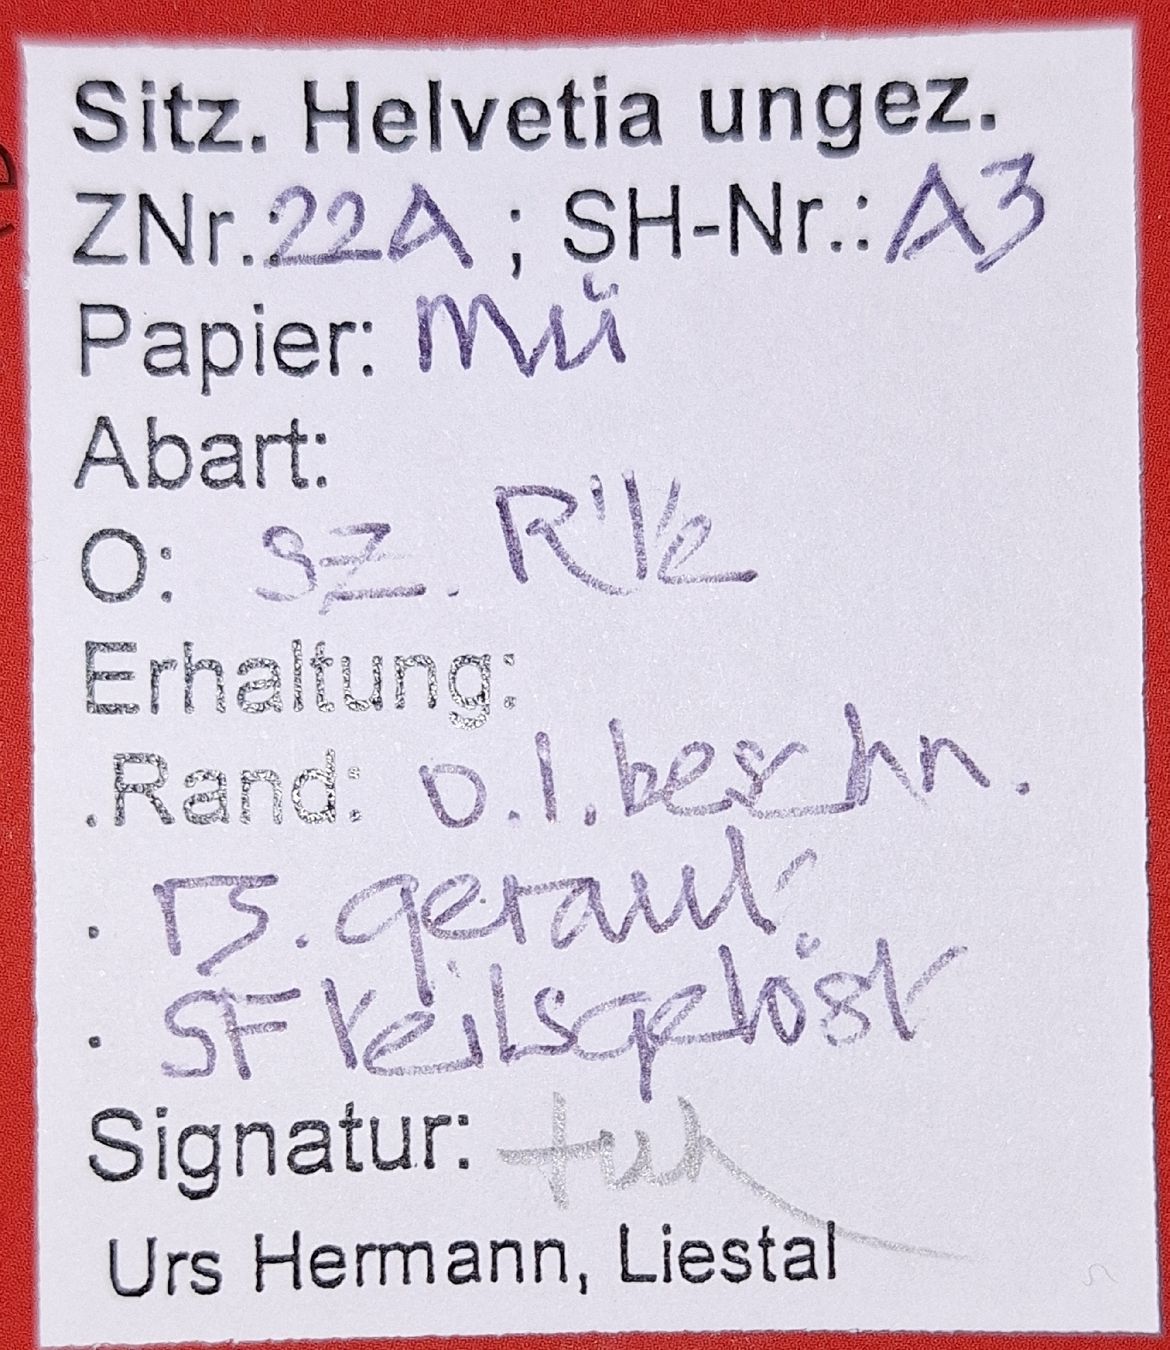 Sitz. Helvetia ungez.
ZNr.: 22A ; SH-Nr.: A3
Papier: Mü
Abart:
O: SZ.
Erhaltung:
.Rand: o.l. beschn.
. rs. geraut
. SF teilsgelöst
Signatur:
Urs Hermann, Liestal